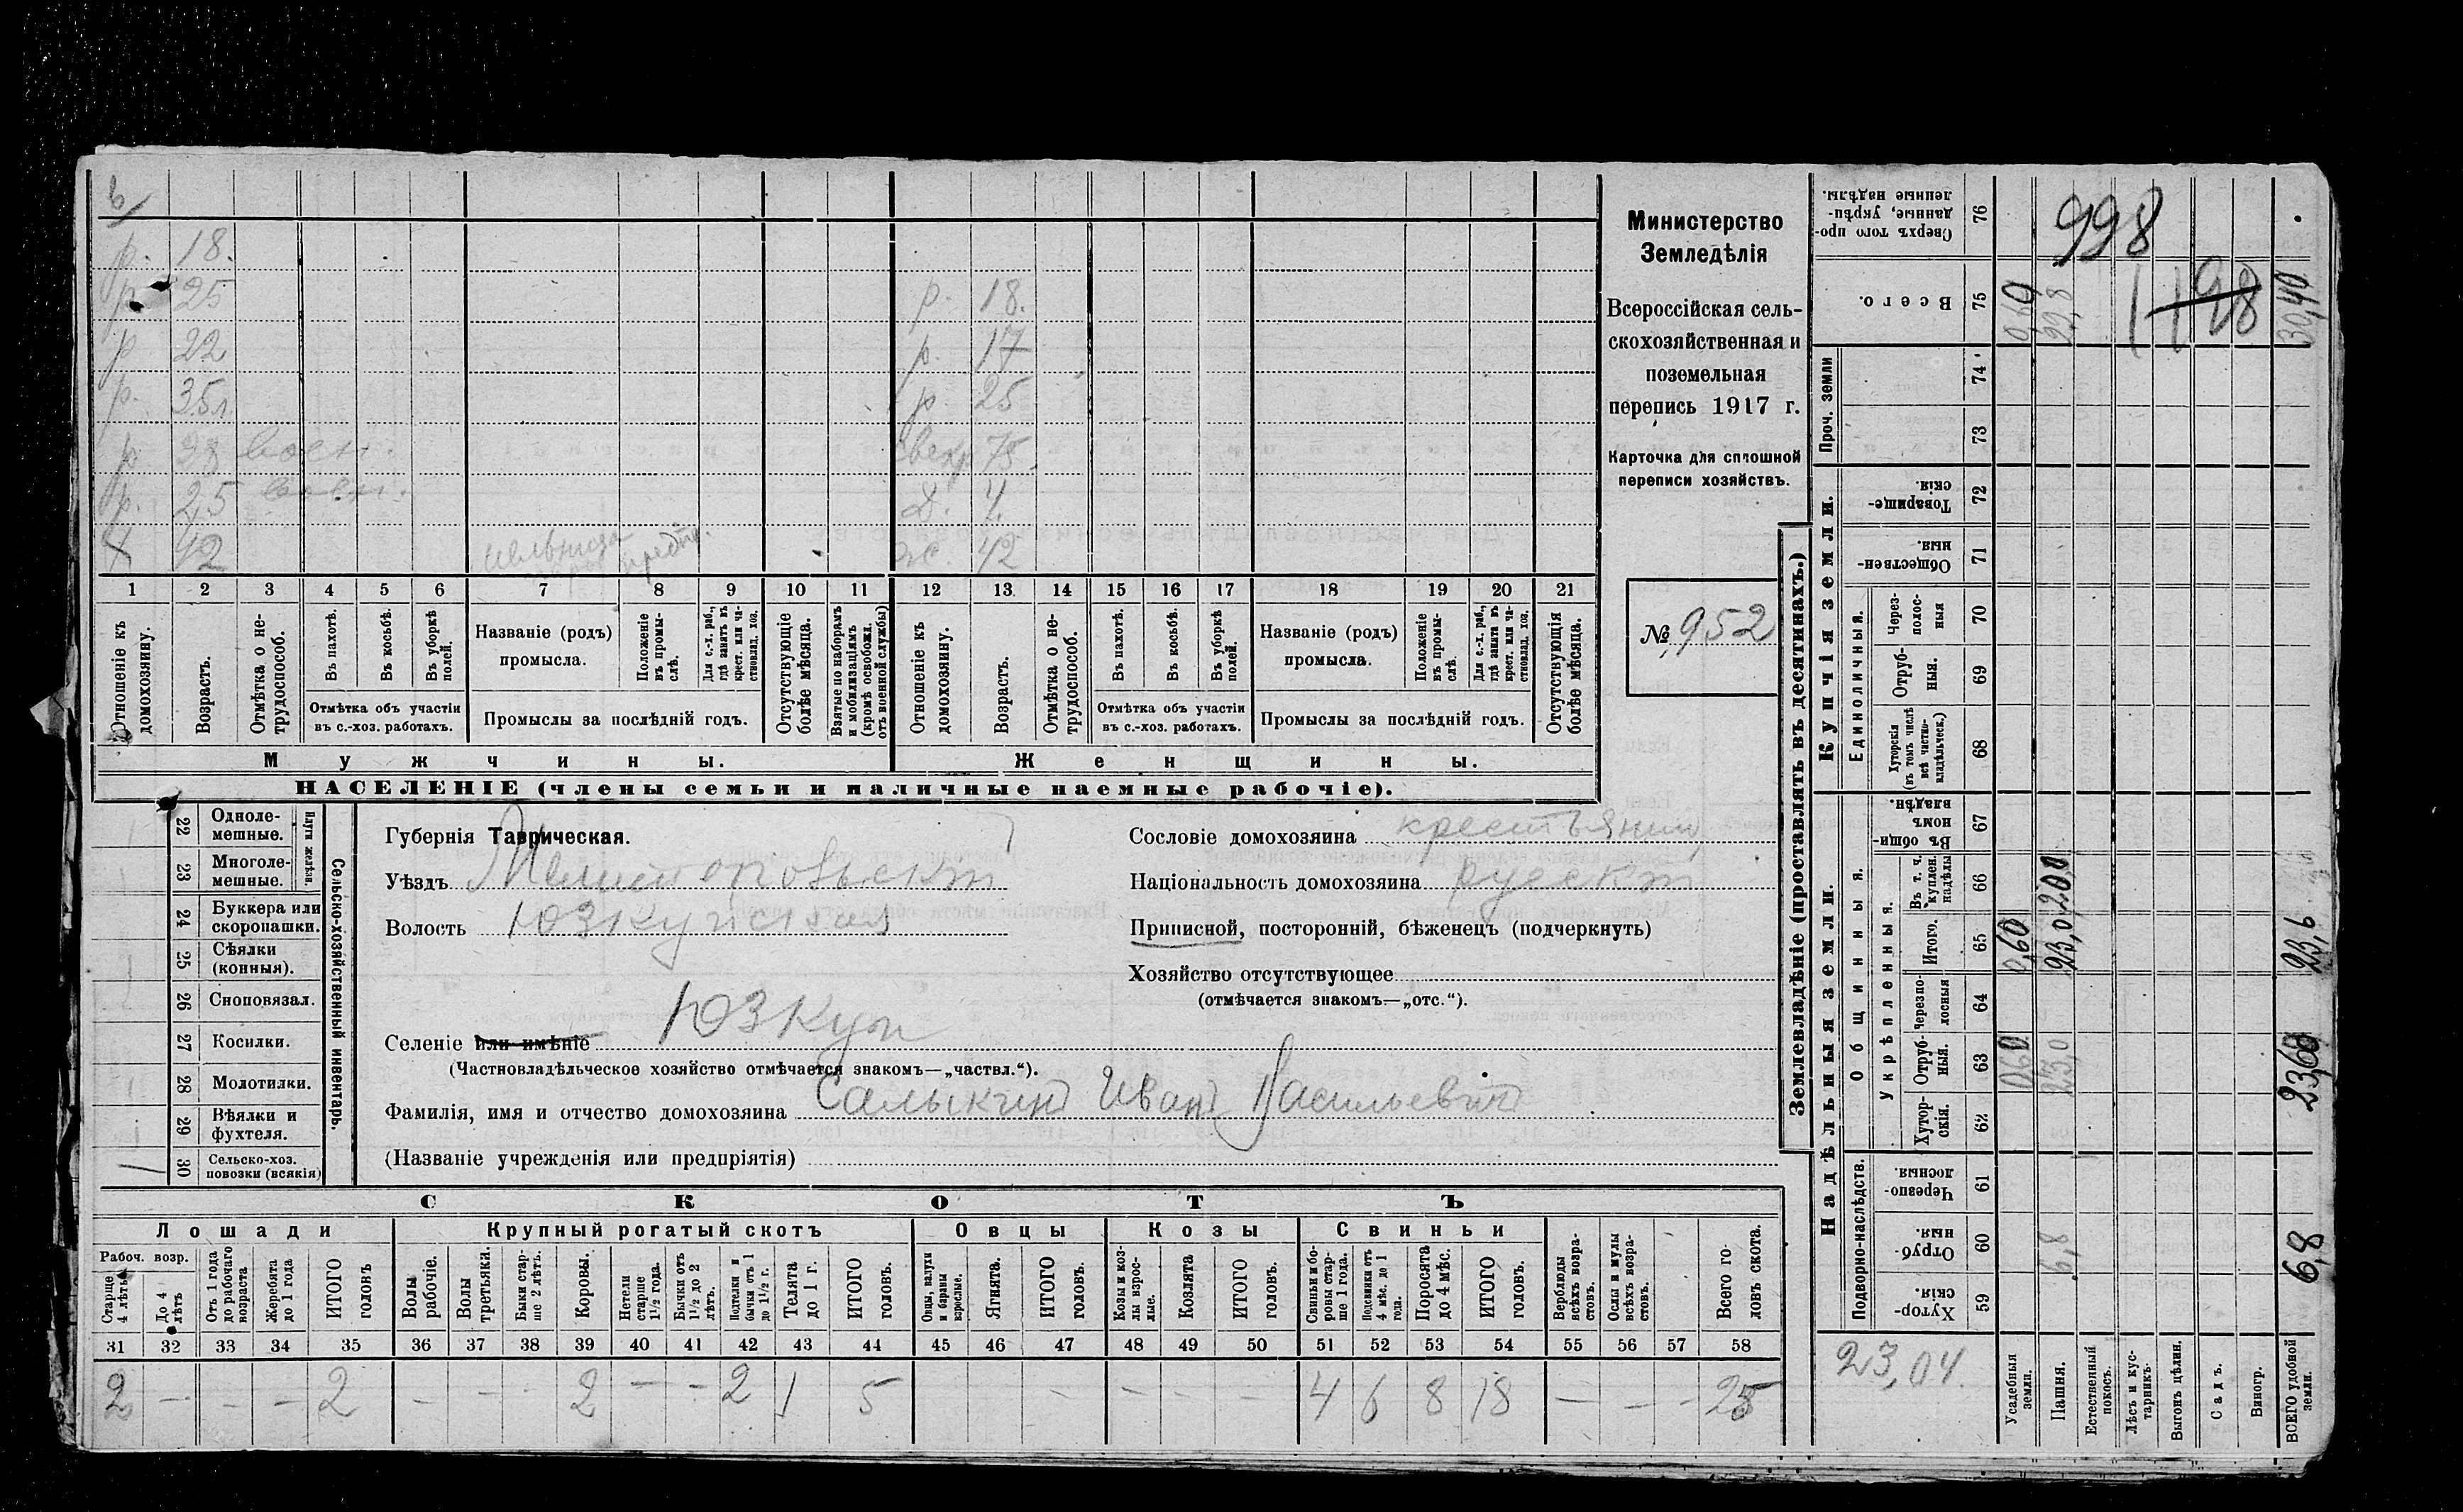 6/
р. 18.
р. 25 р. 18.
р 22 р. 17
р. 35 л р. 25
р 28 воен. свекр 75.
р. 25 воен. д. 4
х 42 мельница ж. 42
1 2 3 4 5 6 7 8 9 10 11 12 13 14 15 16 17 18 19 20 21
Отношеніе къ домохозяину.
Возрастъ.
Отмѣтка о нетрудоспособ.
Въ пахотѣ.
Въ косьбѣ.
Въ уборкѣ полей.
Отмѣтка объ участіи въ с.-хоз. работахъ.
Названіе (родъ) промысла.
Положеніе въ промыслѣ.
Для с.-х. раб., гдѣ занятъ въ крест. или частновлад. хоз.
Промыслы за послѣдній годъ.
Отсутствующіе болѣе мѣсяца.
Взятые по наборамъ и мобилизаціямъ (кромѣ освобожд. отъ военной службы)
Отношеніе къ домохозяину.
Возрастъ.
Отмѣтка о нетрудоспособ.
Въ пахотѣ.
Въ косьбѣ.
Въ уборкѣ полей.
Отмѣтка объ участіи въ с.-хоз. работахъ.
Названіе (родъ) промысла.
Положеніе въ промыслѣ.
Для с.-х. раб., гдѣ занята въ крест. или частновлад. хоз.
Промыслы за послѣдній годъ.
Отсутствующія болѣе мѣсяца.
Мужчины. Женщины.
НАСЕЛЕНІЕ (члены семьи и наличные наемные рабочіе).
Министерство
Земледѣлія
Всероссійская сель-
скохозяйственная и
поземельная
перепись 1917 г.
Карточка для сплошной
переписи хозяйствъ.
№ 952
22 Одноле-мешные.
23 Многоле-мешные.
Плуги желѣзн.
24 Буккера или скоропашки.
25 Сѣялки (конныя).
26 Сноповязал.
27 Косилки.
28 Молотилки.
29 Вѣялки и фухтеля.
30 Сельско-хоз. повозки (всякія)
Сельско-хозяйственный инвентарь.
Губернія Таврическая.
Уѣздъ Мелитопольскій
Волость Юзкуйская
Селеніе или имѣніе Юзкуи
(Частновладѣльческое хозяйство отмѣчается знакомъ—„частвл.“).
Фамилія, имя и отчество домохозяина Салыкинъ Иванъ Васильевичъ
(Названіе учрежденія или предпріятія)
Сословіе домохозяина крестьянин
Національность домохозяина русскій
Приписной, посторонній, бѣженецъ (подчеркнуть)
Хозяйство отсутствующее
(отмѣчается знакомъ—„отс.“).
СКОТЪ
Лошади Крупный рогатый скотъ Овцы Козы Свиньи
Рабоч. возр.
Старше 4 лѣтъ
До 4 лѣтъ
Отъ 1 года до рабочаго возраста
Жеребята до 1 года
ИТОГО головъ
Волы рабочіе.
Волы третьяки.
Быки старше 2 лѣтъ.
Коровы.
Нетели старше 1½ года.
Бычки отъ 1½ до 2 лѣтъ.
Подтелки и бычки отъ 1 до 1½ г.
Телята до 1 г.
ИТОГО головъ.
Овцы, валухи и бараны взрослые.
Ягнята.
ИТОГО головъ.
Козы и козлы взрослые.
Козлята
ИТОГО головъ.
Свиньи и боровы старше 1 года.
Подсвинки отъ 4 мѣс. до 1 года.
Поросята до 4 мѣс.
ИТОГО головъ.
Верблюды всѣхъ возрастовъ.
Ослы и мулы всѣхъ возрастовъ.
Всего головъ скота.
31 32 33 34 35 36 37 38 39 40 41 42 43 44 45 46 47 48 49 50 51 52 53 54 55 56 57 58
2 — — — 2 — — — 2 — — 2 1 5 — — — — 4 6 8 18 — — — 25
Землевладѣніе (проставлять въ десятинахъ.)
Надѣльныя земли. Купчія земли.
Подворно-наслѣдств.
Общинныя.
Укрѣпленныя.
Единоличныя.
Проч. земли
76 Сверхъ того проданные, укрѣпленные надѣлы.
75 Всего. 0,60 22,8 30,40
998
1198
74
73
72 Товарищескія.
71 Общественныя.
70 Черезполосныя
69 Отрубныя.
68 Хуторскія (въ томъ числѣ всѣ частновладѣльческ.)
67 Въ общинномъ владѣн.
66 Въ т. ч. куплен. надѣлы 20,0
65 Итого. 0,60 23,0 23,6
64 Черезполосныя
63 Отрубныя. 0,60 23,0 23,60
62 Хуторскія.
61 Черезполосныя.
60 Отрубныя. 6,8 6,8
59 Хуторскія.
23,04.
Усадебныя земли.
Пашня.
Естественный покосъ.
Лѣсъ и кустарникъ.
Выгонъ цѣлин.
Садъ.
Виногр.
ВСЕГО удобной земли.